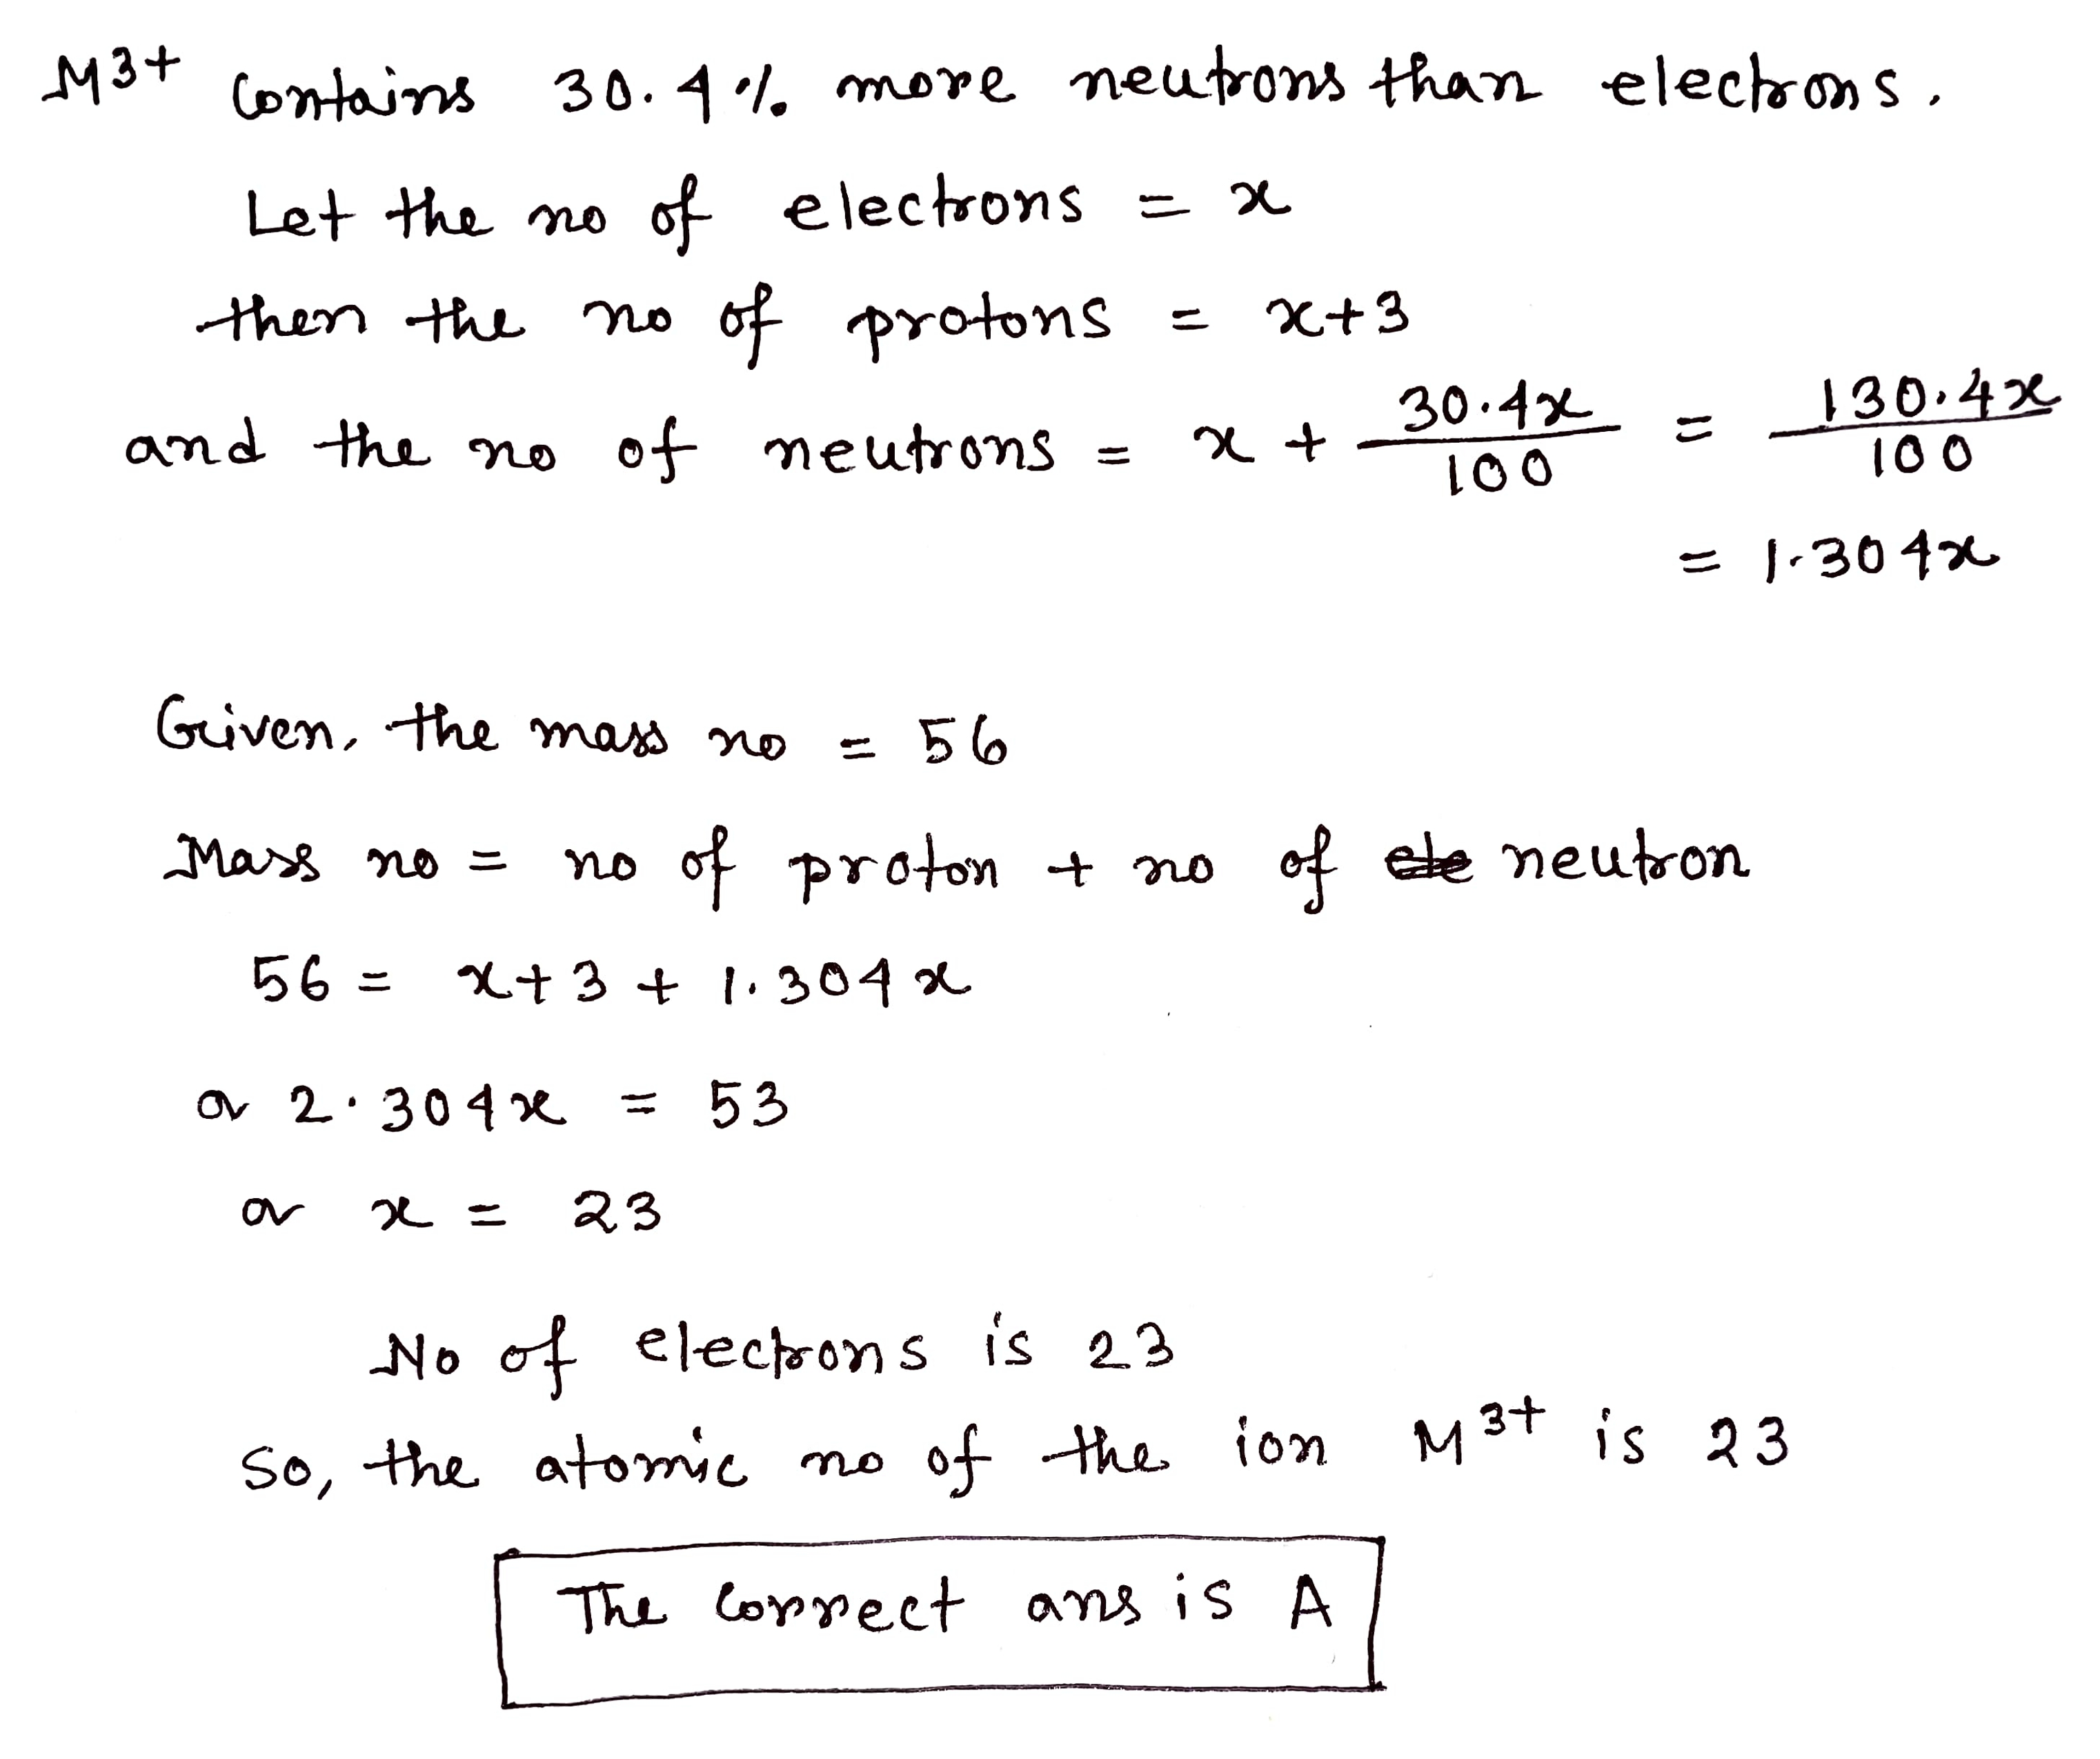 M3+ Contains 30.4% more neutrons than electrons.
Let the no of electrons = x
then the no of protons = x+3
and the no of neutrons = x + 30.4x/100 = 130.4x/100
= 1.304x
Given, the mass no = 56
Mass no = no of proton + no of ele neutron
56 = x+3 + 1.304x
or 2.304x = 53
or x = 23
No of electrons is 23
So, the atomic no of the ion M3+ is 23
The Correct ans is A